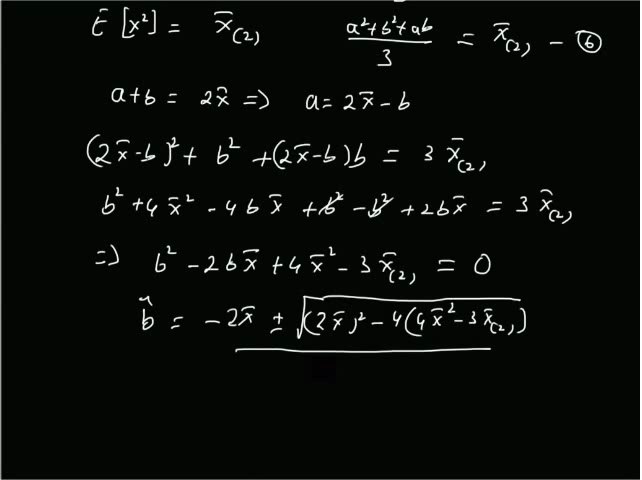 E [x²] = x̄₍₂₎   (a²+b²+ab)/3 = x̄₍₂₎ – ⑥
a+b = 2x̄ => a = 2x̄ – b
(2x̄–b)² + b² + (2x̄–b)b = 3 x̄₍₂₎
b² + 4x̄² – 4bx̄ + b² – b² + 2bx̄ = 3 x̄₍₂₎
=> b² – 2bx̄ + 4x̄² – 3x̄₍₂₎ = 0
b̂ = – 2x̄ ± √((2x̄)² – 4(4x̄² – 3x̄₍₂₎)